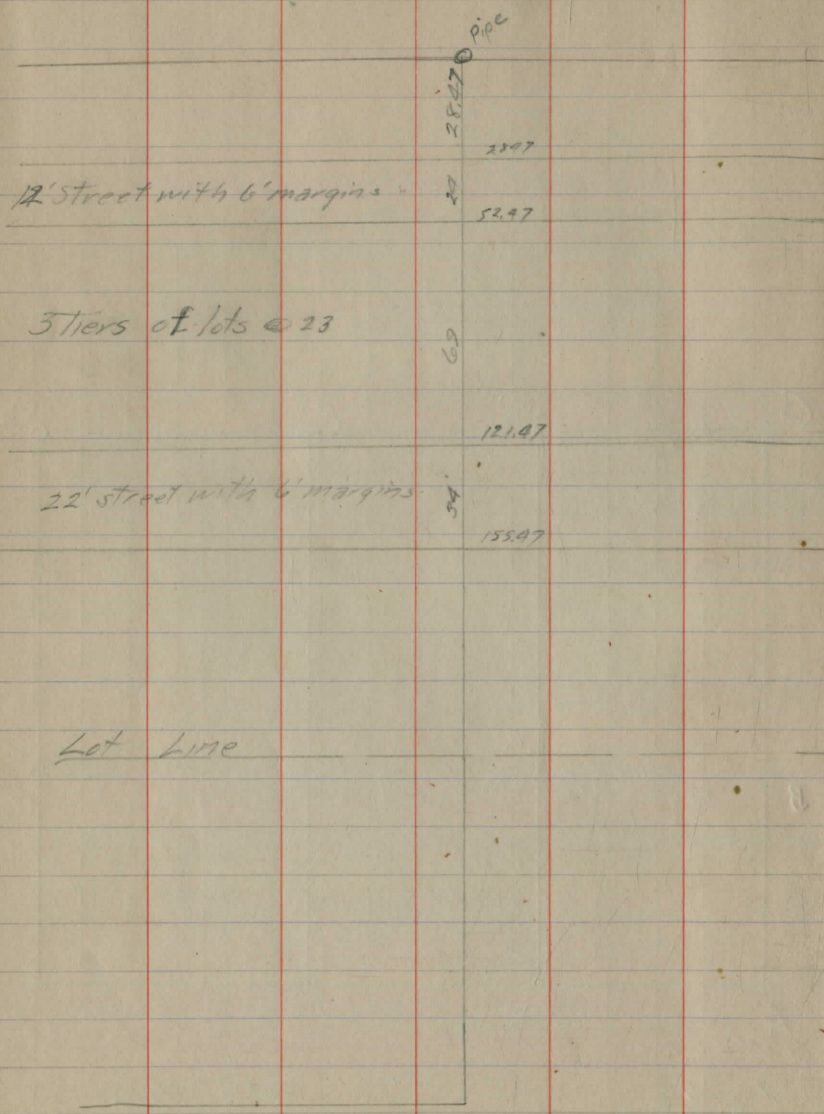 pipe
28.47
2847
12' Street with 6' margins
24
52.47
3 Tiers of lots @ 23
69
121.47
22' street with 6' margins
34'
155.47
Lot Line